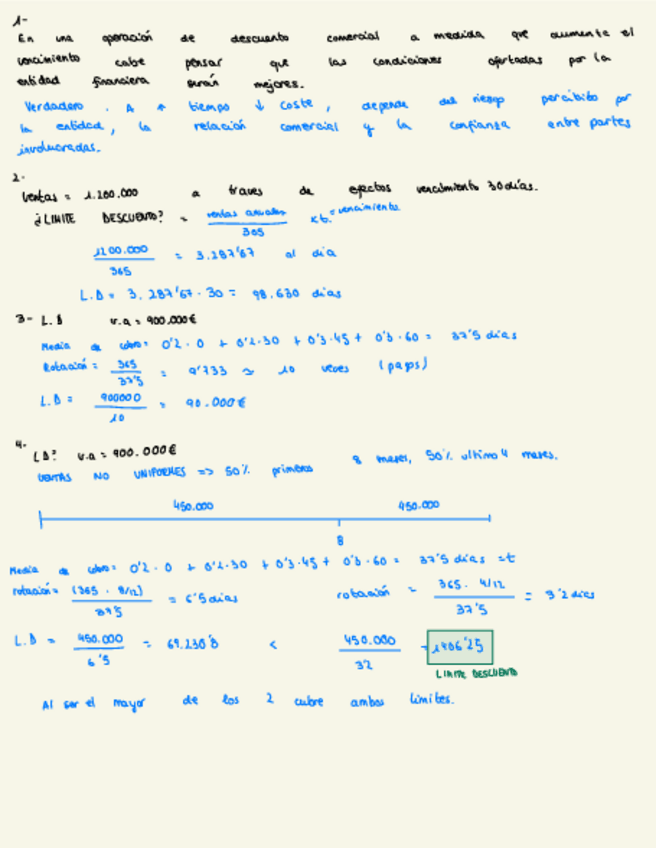 1-
En una operación de descuento comercial a medida que aumente el
vencimiento cabe pensar que las condiciones ofertadas por la
entidad financiera serán mejores.
Verdadero. A ↑ tiempo ↓ coste, depende del riesgo percibido por
la entidad, la relación comercial y la confianza entre partes
involucradas.
2.
Ventas = 1.200.000 a traves de efectos vencimiento 30 días.
¿LIMITE DESCUENTO? = ventas anuales / 365 x t = vencimiento
1200.000 / 365 = 3.287'67 al dia
L.D = 3.287'67 · 30 = 98.630 dias
3- L.D v.a = 900.000€
Media de cobro = 0'2 · 0 + 0'2 · 30 + 0'3 · 45 + 0'3 · 60 = 37'5 dias
Rotación = 365 / 37'5 = 9'733 ≈ 10 veces (pagos)
L.D = 900000 / 10 = 90.000€
4.
LD? v.a = 900.000€
VENTAS NO UNIFORMES => 50% primeros 8 meses, 50% ultimo 4 meses.
450.000 450.000
8
Media de cobro = 0'2 · 0 + 0'2 · 30 + 0'3 · 45 + 0'3 · 60 = 37'5 dias = t
rotación = (365 · 8/12) / 37'5 = 6'5 dias rotación = 365 · 4/12 / 37'5 = 3'2 dias
L.D = 450.000 / 6'5 = 69.230'8 < 450.000 / 32 = 1406'25
LIMITE DESCUENTO
Al ser el mayor de los 2 cubre ambos limites.